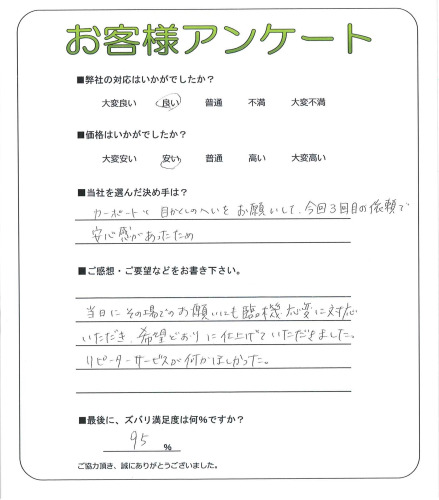 お客様アンケート
■弊社の対応はいかがでしたか？
大変良い 良い 普通 不満 大変不満
■価格はいかがでしたか？
大変安い 安い 普通 高い 大変高い
■当社を選んだ決め手は？
カーポートと目かくしのへいをお願いして、今回3回目の依頼で
安心感があったため
■ご感想・ご要望などをお書き下さい。
当日にその場でのお願いにも臨機応変に対応
いただき、希望どおりに仕上げていただきました。
リピーターサービスが何かほしかった。
■最後に、ズバリ満足度は何％ですか？
95 ％
ご協力頂き、誠にありがとうございました。